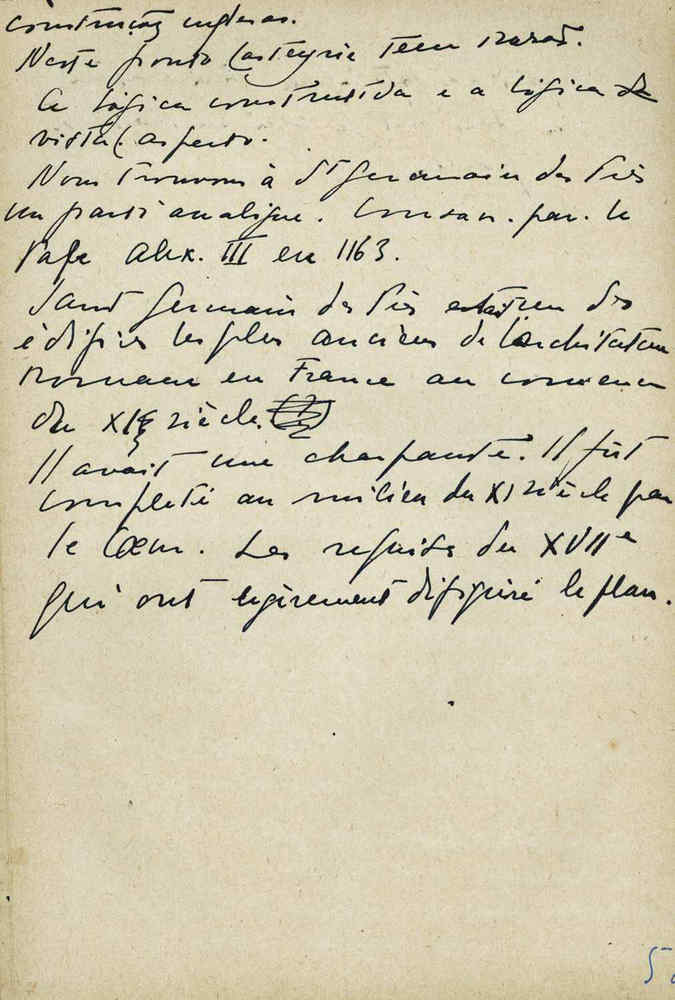 construções inglesas.
Neste ponto Lasteyrie teem razão.
A lógica construida e a lógica da
vista (aspecto.
Nous trouvons à St Germain des Près
un parti analogue. Consac. par. le
Pape Alex. III en 1163.
Saint Germain des Près est un des
édifices les plus anciens de l'architecture
romane en France au commenc
du XIe siècle.
Il avait une charpante. Il fût
completé au milieu du XI siècle par
le Cœur. Les refaits du XVIIe
qui ont legèrement difiguré le plan.
5